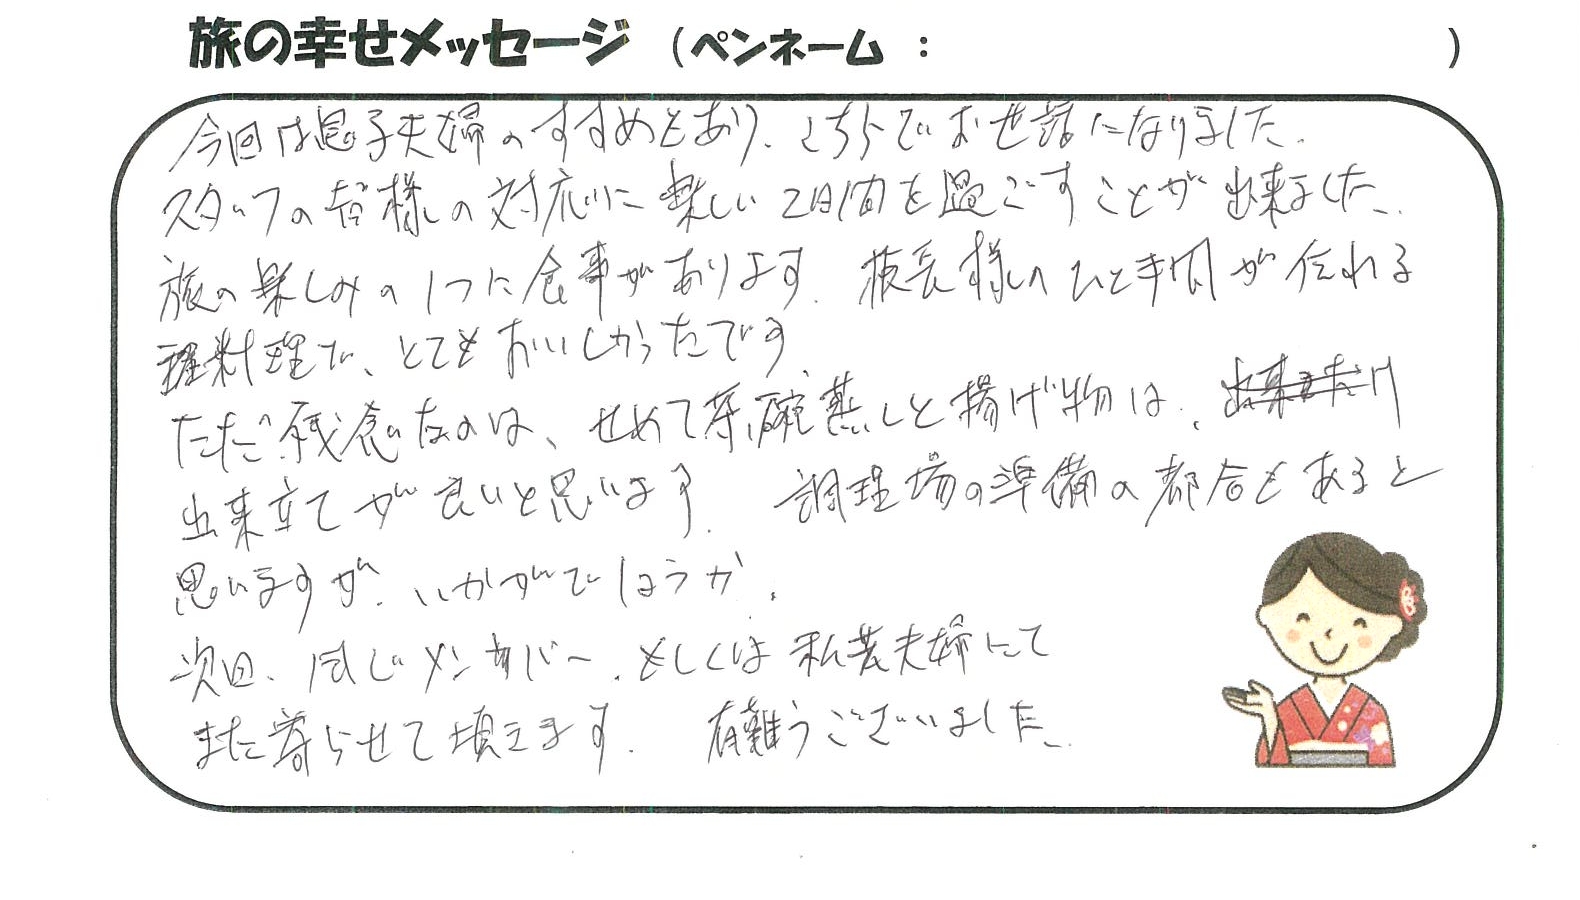 旅の幸せメッセージ （ペンネーム ： ）
今回は息子夫婦のすすめもあり、こちらでお世話になりました。
スタッフの皆様の対応に楽しい2日間を過ごすことが出来ました。
旅の楽しみの1つに食事があります。板長様のひと手間が伝わる
料理で、とてもおいしかったです。
ただ残念なのは、せめて茶碗蒸しと揚げ物は、
出来立てが良いと思います。 調理場の準備の都合もあると
思いますが、いかがでしょうか。
次回、同じメンバー、もしくは私共夫婦にて
また寄らせて頂きます。 有難うございました。